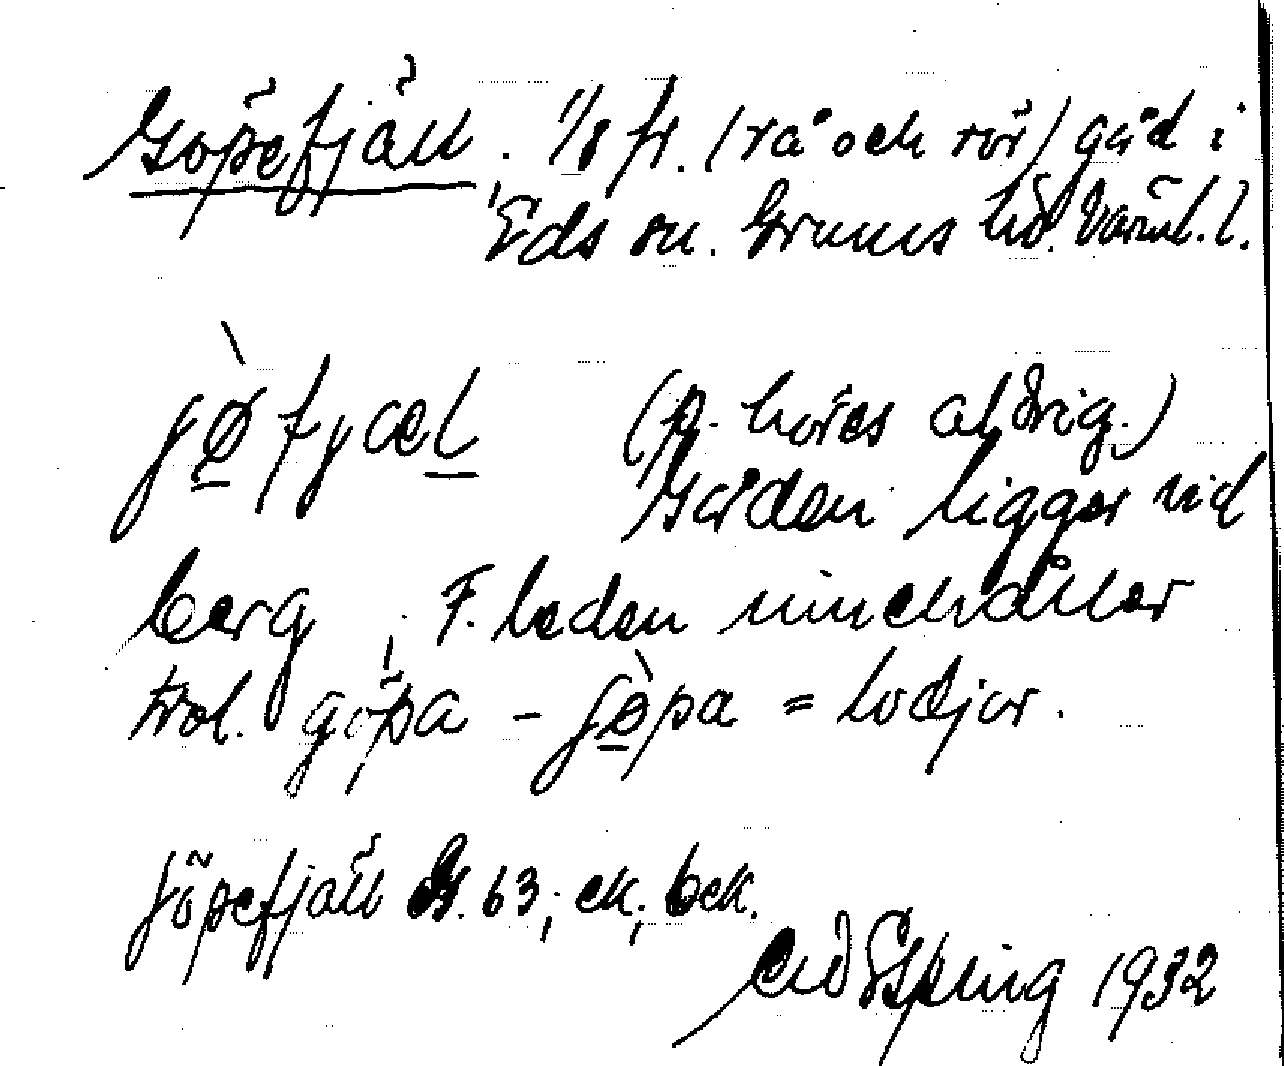 Göpefjäll, 1/8 fr. (rå och rör) gård i
Eds sn. Grums hd. Värml. l.
jø̀fjæl (p. höres aldrig.)
Gården ligger vid
berg, F. leden innehåller
trol. göpa - jø̀pa = lodjur.
Jöpefjäll Gs. 63; ek, bek.
1932